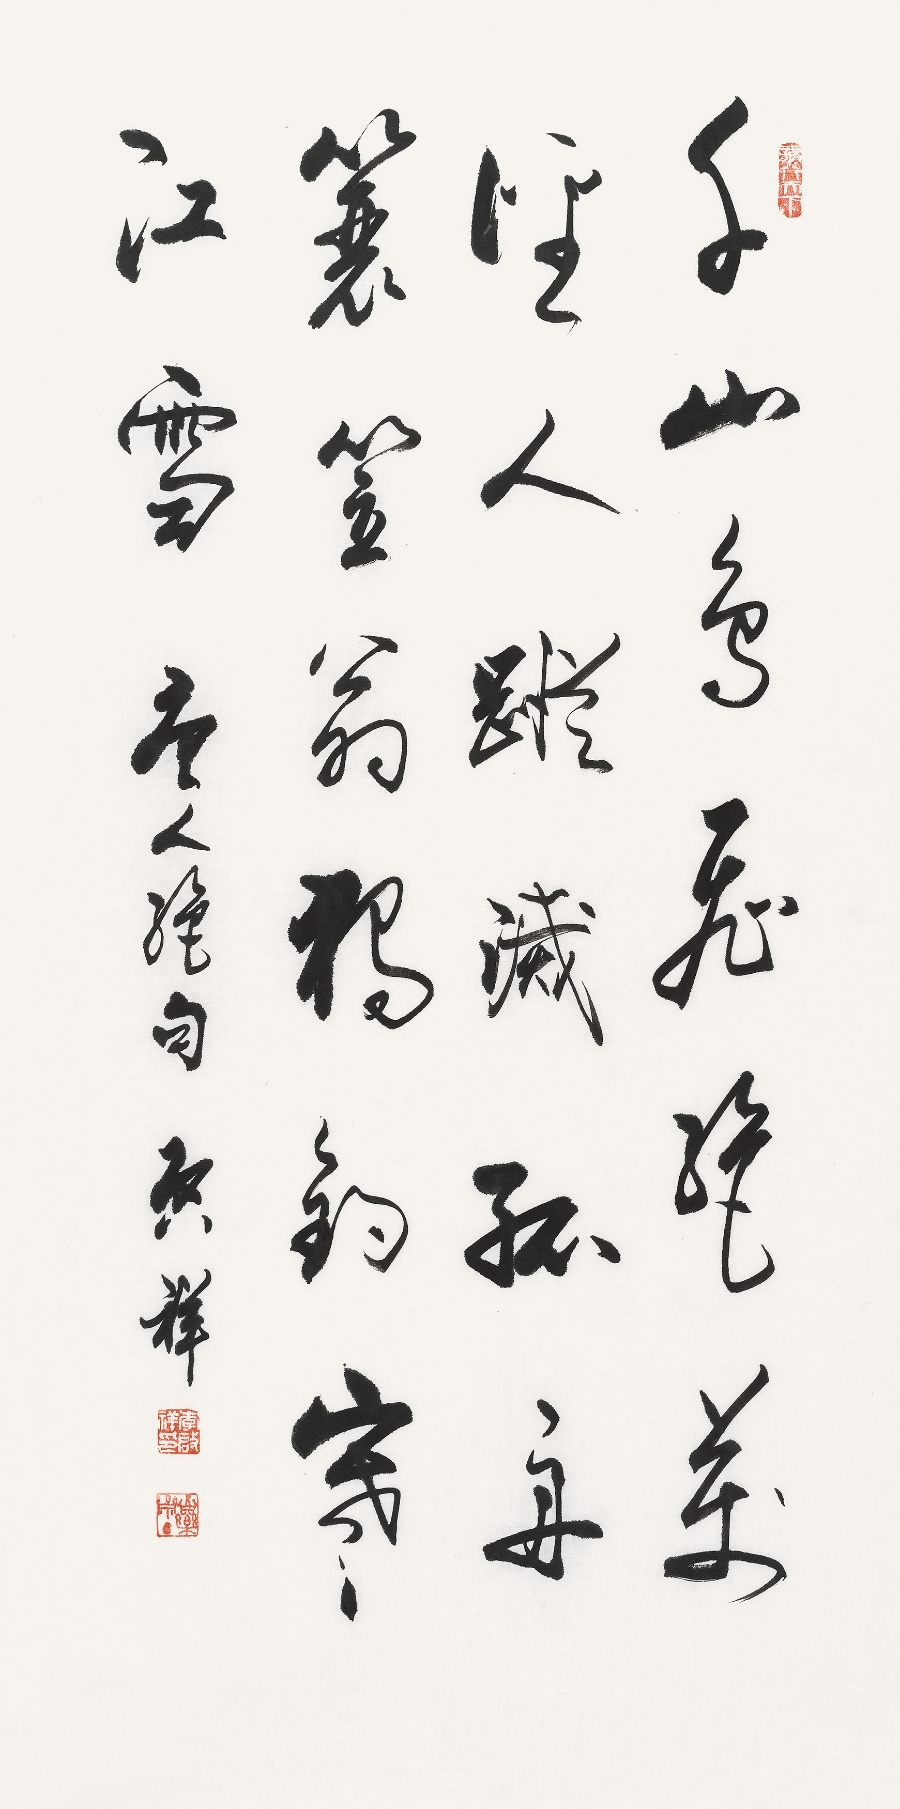 千山鳥飛絕萬
徑人蹤滅孤舟
簑笠翁獨釣寒
江雪 唐人絕句 啟祥
李啟祥印